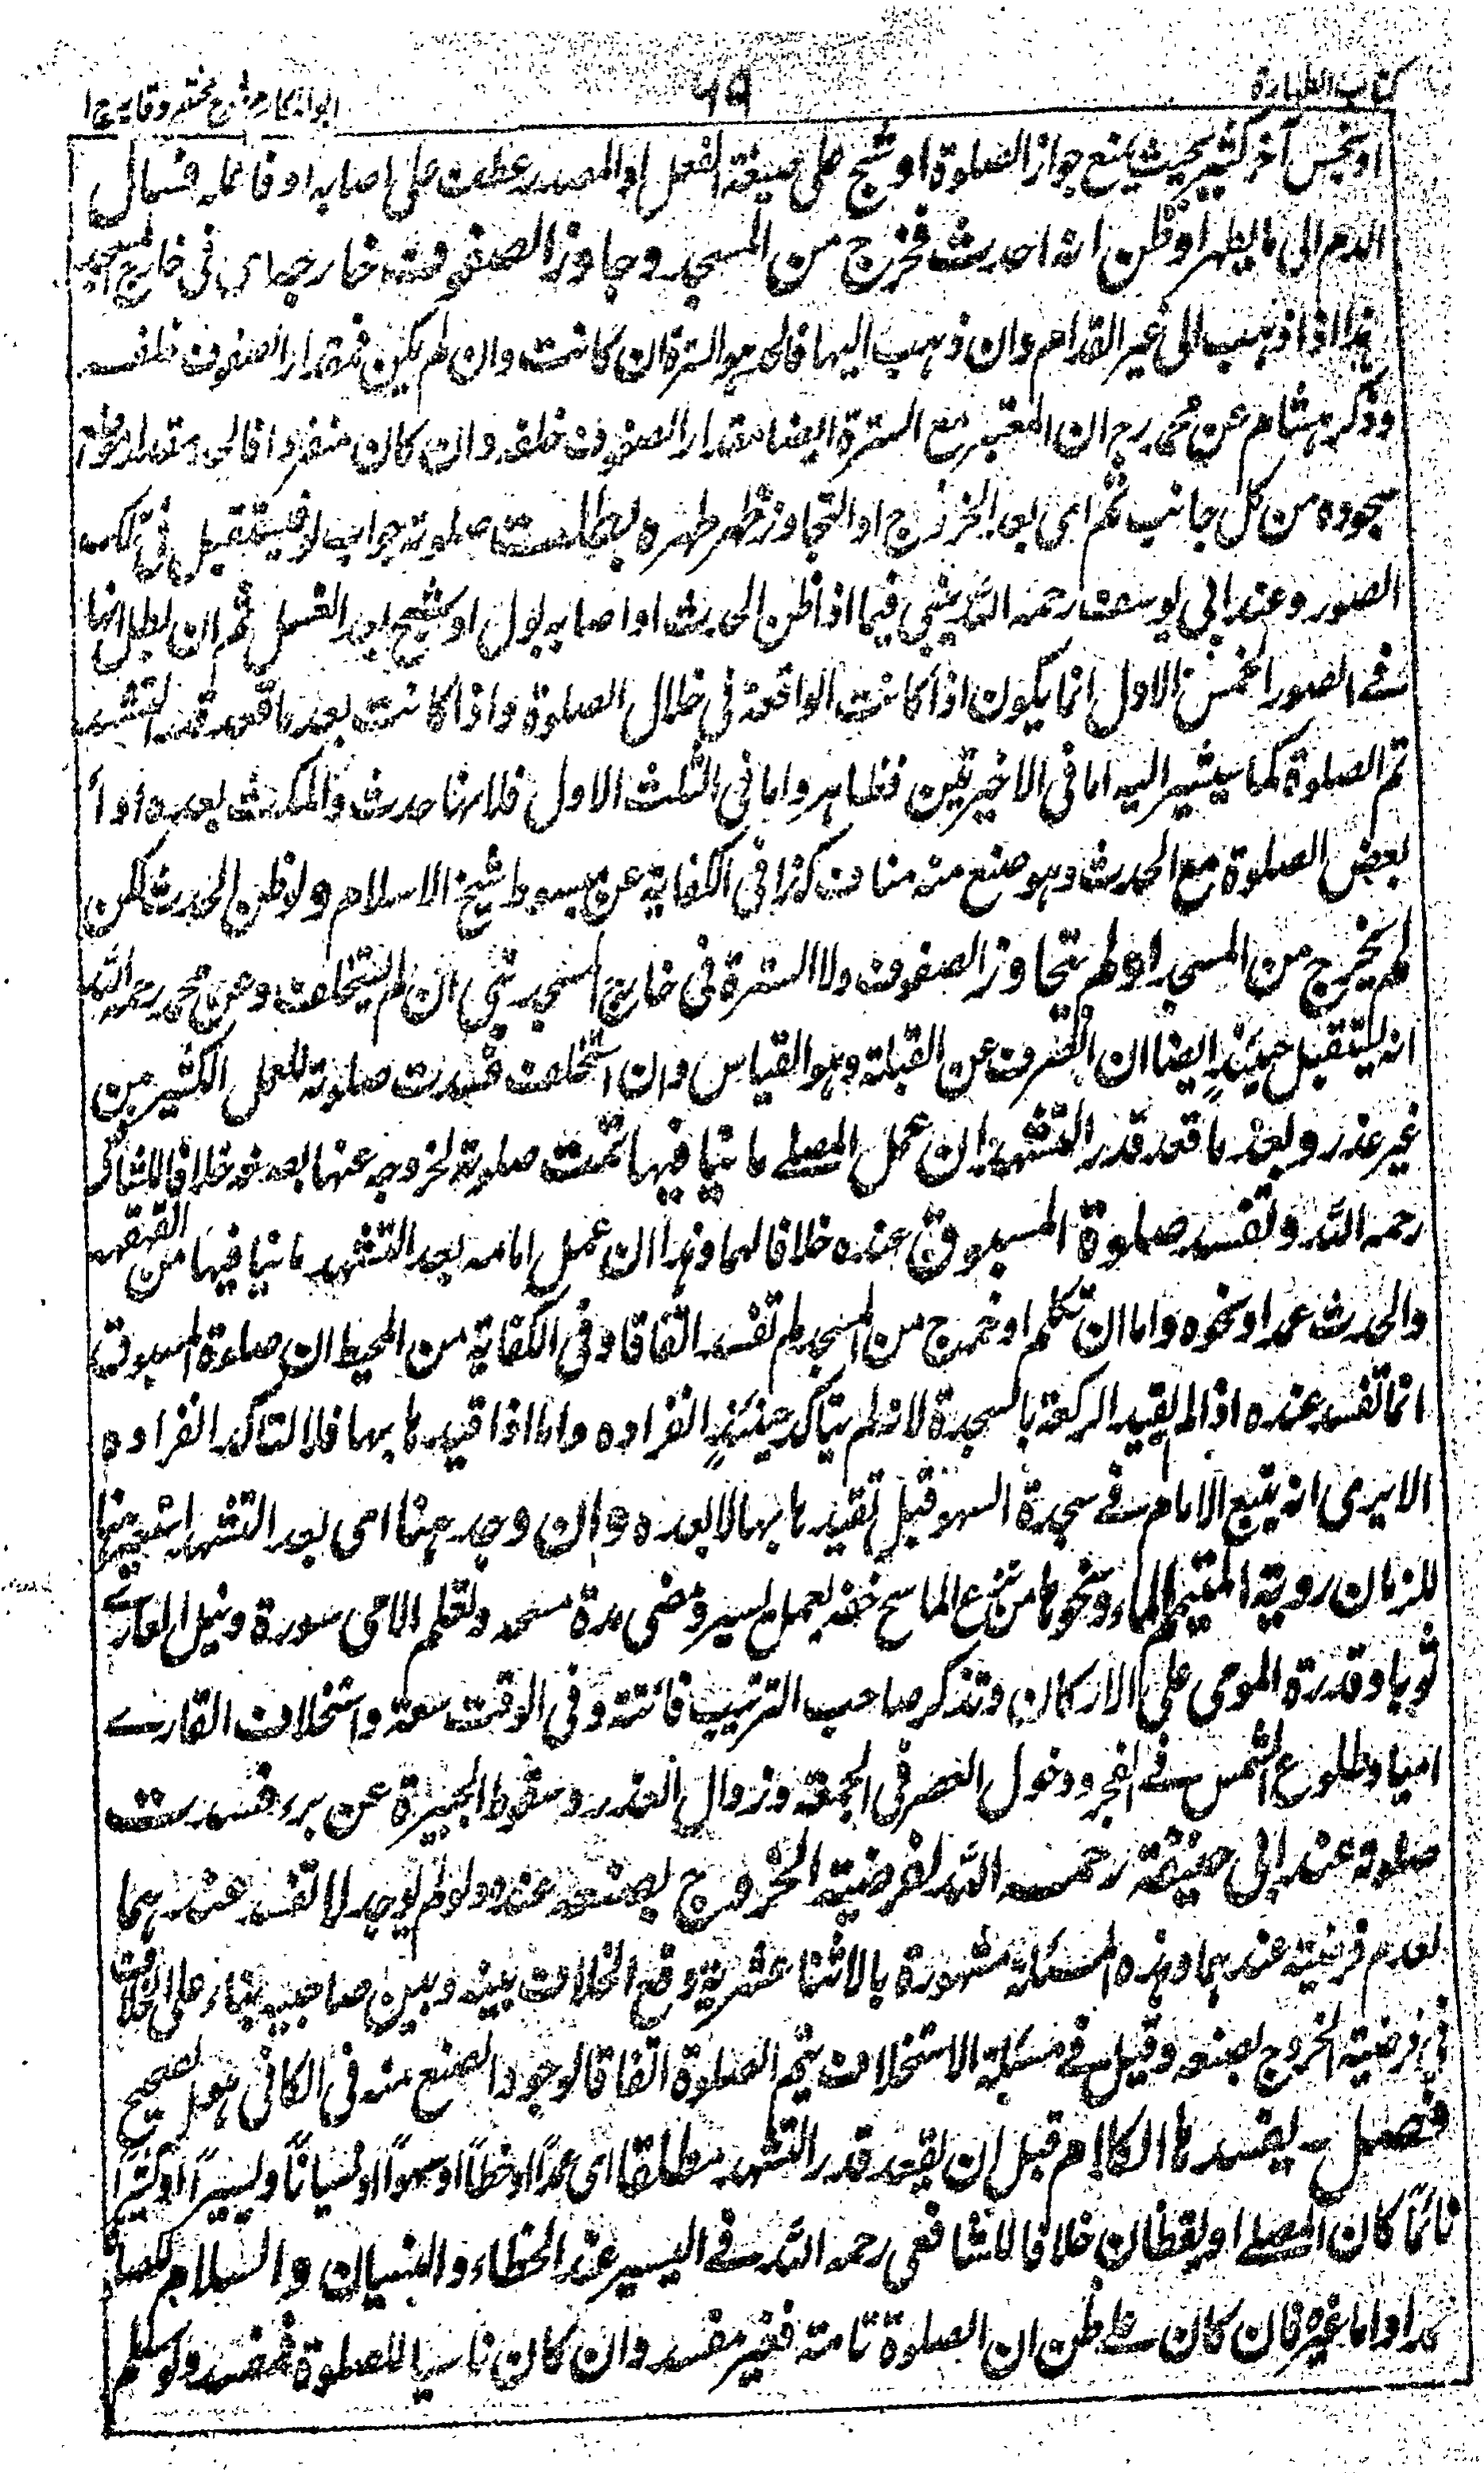 كتاب الطهارة
٦٩
ابو المكارم شرح مختصر وقايه ج ١
او نجس آخر كثير بحيث يمنع جواز الصلوة او شج على صيغة الفعل او المصدر عطف على اصابه او فاعله فسال
الدم الى ما يطهر او ظن انه احدث فخرج من المسجد وجاوز الصفوف خارجه اى فى خارج المسجد
هذا اذا ذهب الى غير القدام وان ذهب اليها فالحد هو السترة ان كانت وان لم يكن فمقدار الصفوف خلفه
وذكر هشام عن محمد رح ان المعتبر مع السترة ايضا مقدار الصفوف خلفه وان كان منفردا فالحد مقدار موضع
سجوده من كل جانب ثم اى بعد الخروج او التجاوز ظهر طهره بطلت صلوته جواب لو فيستقبل فى تلك
الصور وعند ابى يوسف رحمه الله يبنى فيما اذا ظن الحدث او اصابه بول او شج بعد الغسل ثم ان بطلانها
فى الصور الخمس الاول انما يكون اذا كانت الواقعة فى خلال الصلوة واذا كانت بعد ما قعد قدر التشهد
تم الصلوة كما سيشير اليه اما فى الاخيرتين فظاهر واما فى الثلث الاول فلانها حدث والمكث بعده او اداء
بعض الصلوة مع الحدث وهو صنع منه مناف كذا فى الكفاية عن مبسوط شيخ الاسلام ولو ظن الحدث لكن
لم يخرج من المسجد او لم يتجاوز الصفوف ولا السترة فى خارج المسجد بنى ان لم يستخلف وعن محمد رحمه الله
انه يستقبل حينئذ ايضا ان انصرف عن القبلة وهو القياس وان استخلف فسدت صلوته للعمل الكثير من
غير عذر وبعد ما قعد قدر التشهد ان عمل المصلے ما ينافيها تمت صلوته لخروجه عنها بصنعه خلافا للشافعى
رحمه الله وتفسد صلوة المسبوق عنده خلافا لهما وهذا ان عمل امامه بعد التشهد ما ينافيها من القهقهه
والحدث عمدا ونحوه واما ان تكلم او خرج من المسجد لم تفسد اتفاقا وفى الكفاية من المحيط ان صلوة المسبوق
انما تفسد عنده اذا لم يقيد الركعة بالسجدة لانه لم يتأكد حينئذ انفراده واما اذا قيدها بها فلا لتاكد انفراده
الا يرى انه يتبع الامام فے سجدة السهو قبل تقيدها بها لا بعده وان وجد هنا اى بعد التشهد
للزمان روية المتيمم الماء ونحوها من نزع الماسح خفه بعمل يسير ومضى مدة مسحه وتعلم الامى سورة ونيل العارے
ثوبا وقدرة المومى على الاركان وتذكر صاحب الترتيب فائتة وفى الوقت سعة واستخلاف القارے
اميا وطلوع الشمس فے الفجر ودخول العصر فى الجمعة وزوال العذر وسقوط الجبيرة عن برء فسدت
صلوة عند ابى حنيفة رحمه الله لفرضية الخروج بصنعه عنده ولو لم يوجد لا تفسد عندهما
لعدم فرضيته عندهما وهذه المسئلة مشهورة بالاثنا عشرية وقع الخلاف بينه وبين صاحبيه بناء على الخلاف
فى فرضية الخروج بصنعه وقيل فے مسئلة الاستخلاف يتم الصلوة اتفاقا لوجود الصنع منه فى الكافى هو الصحيح
فصل يفسدها الكلام قبل ان يقعد قدر التشهد مطلقا اى عمدًا او خطأ او سهوًا او نسيانًا ويسيرًا او كثيرًا
نائمًا كان المصلے او يقظان خلافا للشافعى رحمه الله فے اليسير عند الخطاء والنسيان والسلام
عمدا واما غيره فان كان على ظن ان الصلوة تامة فغير مفسد وان كان ناسيا للصلوة فمفسد ولو سلم